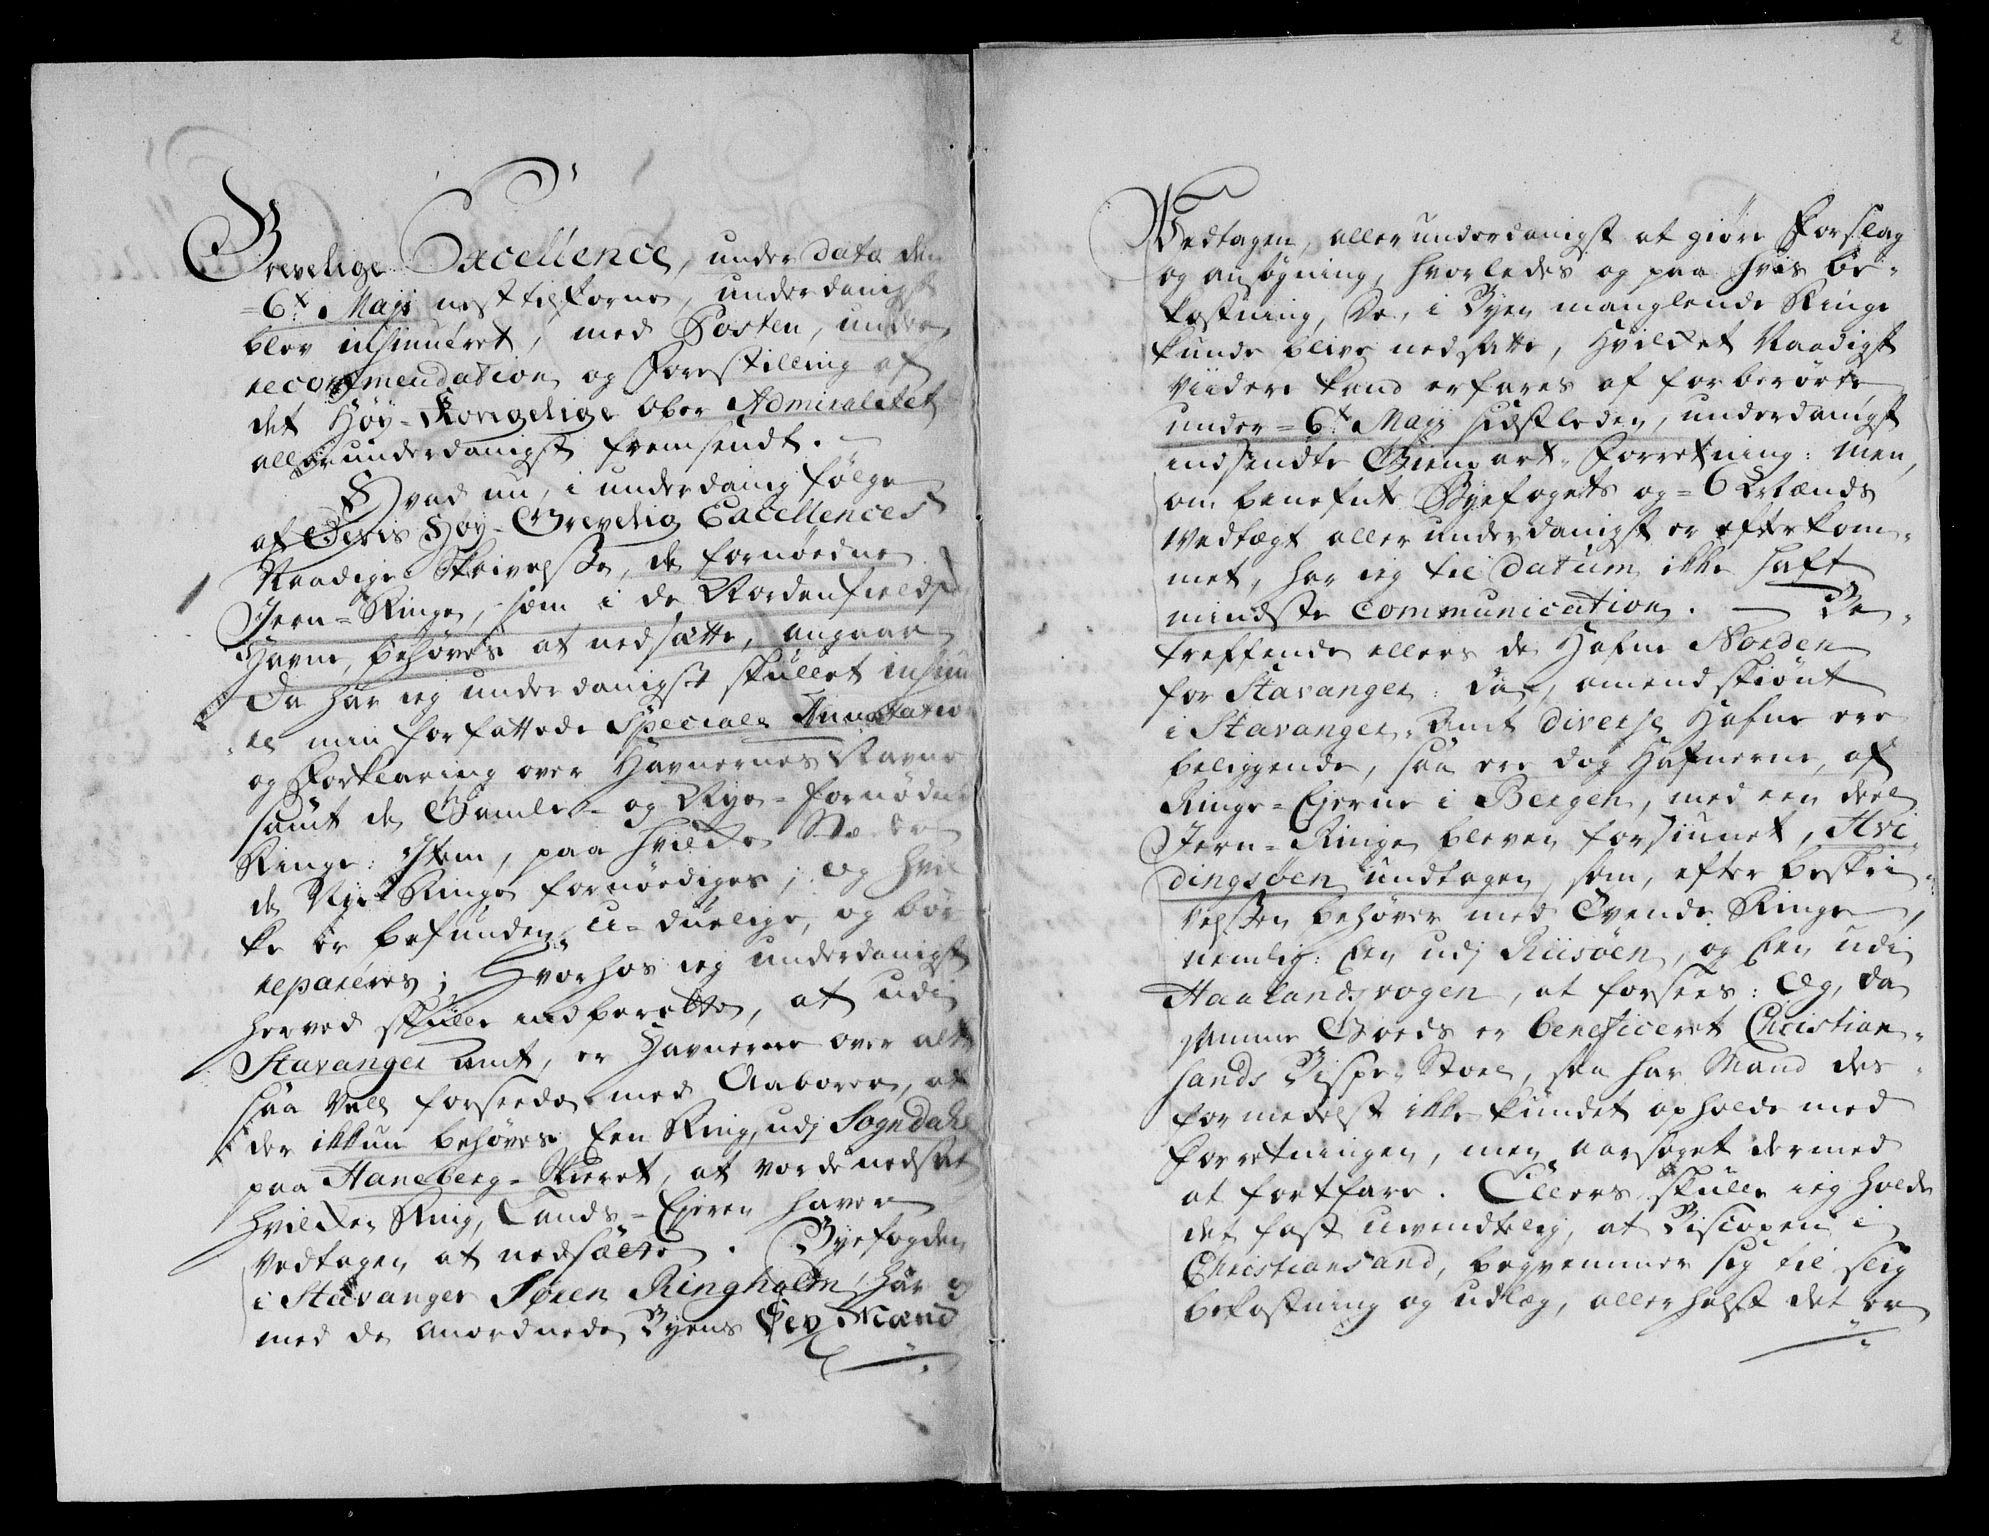 Grevelige Excellence, under dato den
=6te Maji nesttilkorne, underdanigst
blev insinueret, med Posten, under
recommendation og Forestilling af
det Høy-Kongelige Ober Admiralitet
allerunderdanigst fremsendt. –
Hvad nu, i underdanig følge
af Deris Høy-Grevelig Excellences
Naadige Skrivelsse, de fornødne
Jern=Ringe, som i de Nordenfieldske
Havne, behøves at nedsætte, angaar
Da har ieg underdanigst skullet insinu
ere min forfattede Speciale Annotation
og Forklaring over Havnernes Navne
samt de Gamle- og Nye- fornødne
Ringe: Item, paa hvilke Stæder
de Nye Ringe fornødiges; og hvil
ke er befunden u-duelige, og bør
repareres; Hvorhos ieg underdanigst
herved skulle indberette, at udi
Stavanger amt, er Havnerne over alt
saa vell forseede med Aaborer, at
der ikkun behøves Een Ring, udj Sogndahl
paa Haneberg-Skieret, at vorde nedsat
hvilken Ring, Lands-Ejeren haver
vedtagen at nedsætte. Byefogden
i Stavanger Søren Ringholm, har og
med de anordnede Byens Sex Mænd
2
Vedtagen, allerunderdanigst at giøre Forslag
og ansøgning, hvorledes og paa hvis be-
kostning, De, i Byen manglende Ringe
kunde blive nedsatte, hvilket Naadigst
viidere kand erfares af forberørte,
under =6te Maji sidstleden, underdanigst
indsendte Gienpart-Forretning: men,
om benefnte Byefogets og =6 Mænds
Vedtægt allerunderdanigst er efterkom-
met, har ieg til Datum ikke haft
mindste Communication. — Be-
treffende ellers de Hafne Norden
for Stavanger: da, omendskiønt
i Stavanger Amt diverse Hafne ere
beliggende, saa ere dog Hafnerne, af
Ringe-Ejerne i Bergen, med een deel
Jern-Ringe bleven forsiunet, Hvi-
dingsøen undtagen, som, efter beskri-
velssen behøver med Tvende Ringe,
nemlig: Een udj Riisøen, og Een udi
Haalandsvogen, at forsees: Og, da
samme Goeds er beneficeret Christian-
sands Bispe-Stoel, saa har Mand des-
formedelst ikke kundet opholde med
Forretningen, men aarsaget dermed
at fortfare. Ellers skulle ieg holde
det fast uvendtelig, at Biscopen i
Christiansand, beqvemmer sig til slig
bekostning og udlæg, allerhelst det er